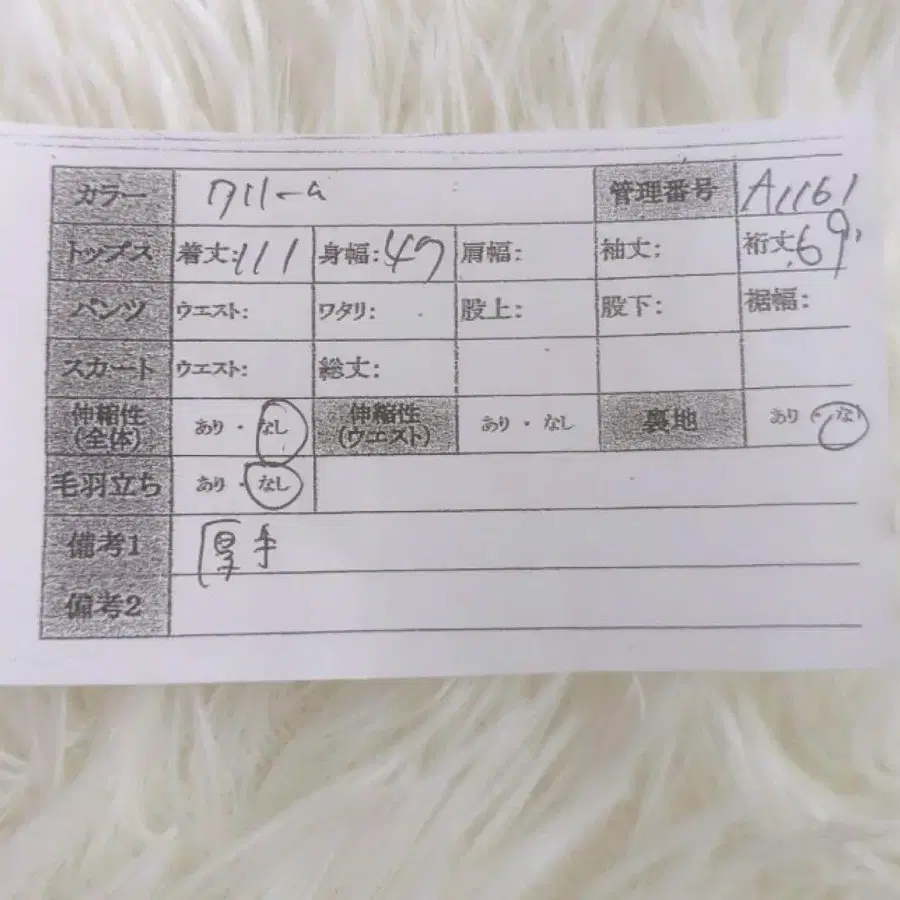 カラー クリーム 管理番号 A1161
トップス 着丈:111 身幅:47 肩幅: 袖丈: 裄丈:69
パンツ ウエスト: ワタリ: 股上: 股下: 裾幅:
スカート ウエスト: 総丈:
伸縮性(全体) あり・なし 伸縮性(ウエスト) あり・なし 裏地 あり・なし
毛羽立ち あり・なし
備考1 厚手
備考2